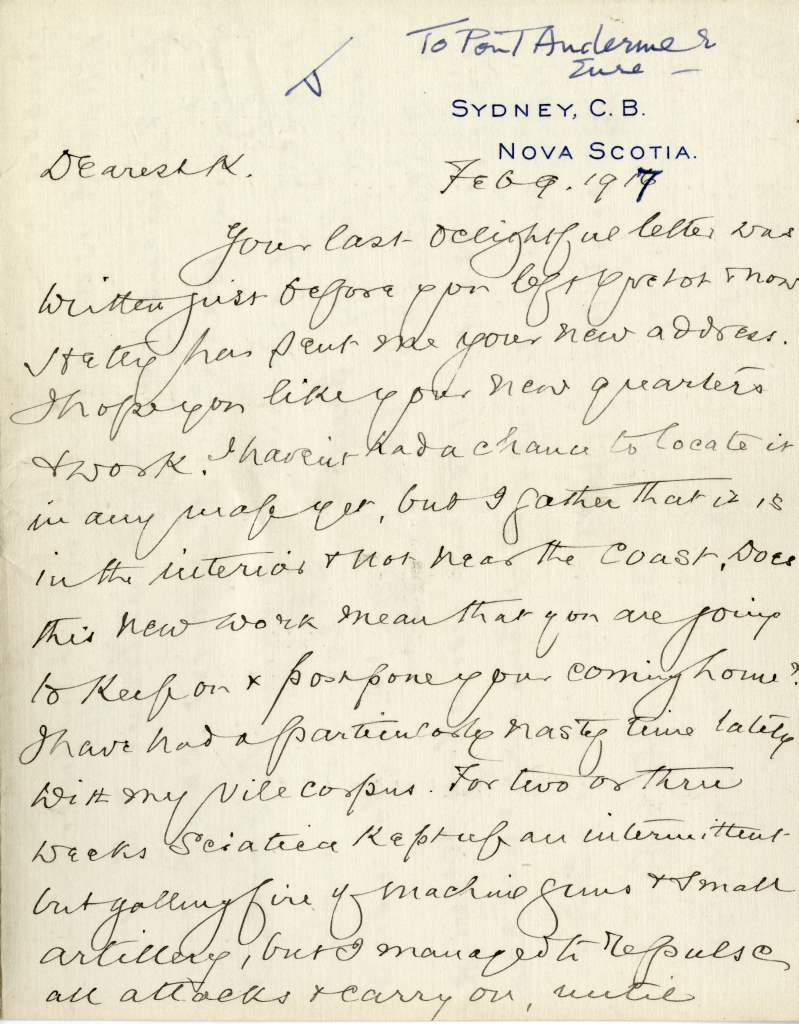 To Pont Audemer
Eure —
SYDNEY, C. B.
NOVA SCOTIA.
Dearest K.
Feb 9. 1917
Your last delightful letter was
written just before you left & now
Hetty has sent me your new address.
I hope you like your new quarters
& work. I havent had a chance to locate it
in any map yet, but I gather that it is
in the interior & not near the coast. Does
this new work mean that you are going
to keep on & postpone your coming home?
I have had a particularly nasty time lately
with my vile corpus. For two or three
weeks Sciatica kept up an intermittent
but galling fire of machine guns & small
artillery, but I managed to repulse
all attacks & carry on, until